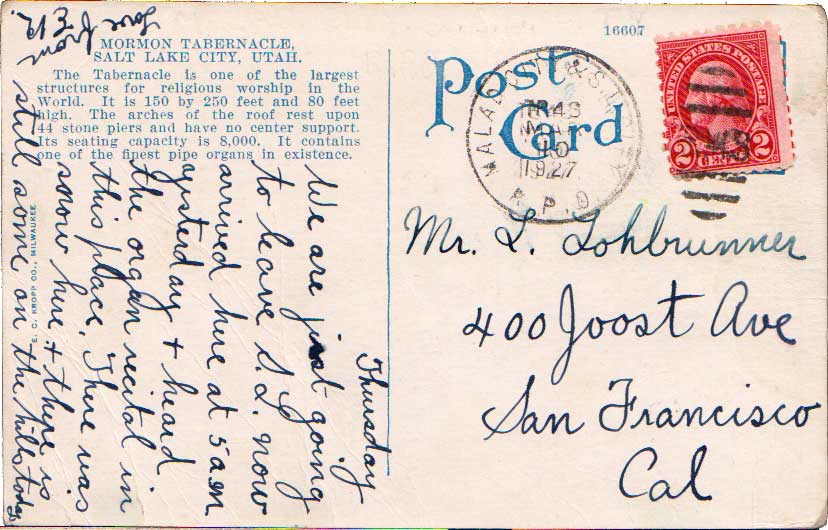 MORMON TABERNACLE,
SALT LAKE CITY, UTAH.
The Tabernacle is one of the largest
structures for religious worship in the
World. It is 150 by 250 feet and 80 feet
high. The arches of the roof rest upon
44 stone piers and have no center support.
Its seating capacity is 8,000. It contains
one of the finest pipe organs in existence.
E. C. KROPP CO., MILWAUKEE
16607
Post
Card
UNITED STATES POSTAGE
2 CENTS 2
& S.L.
R.P.O.
10
1927
Mr. L. Lohbrunner
400 Joost Ave
San Francisco
Cal
Thursday
We are just going
to leave S.L. now
arrived here at 5 a.m.
yesterday & heard
the organ recital in
this place. There was
snow here & there is
still some on the hills today
Love from